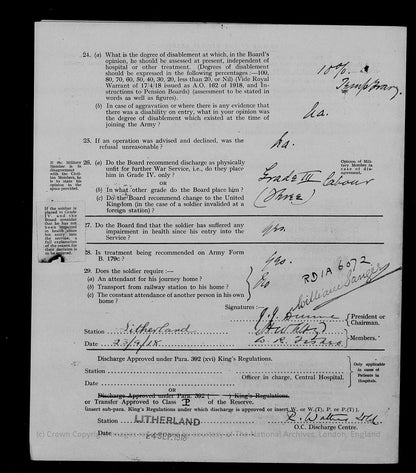 24. (a) What is the degree of disablement at which, in the Board's
opinion, he should be assessed at present, independent of
hospital or other treatment. (Degrees of disablement
should be expressed in the following percentages:—100,
80, 70, 60, 50, 40, 30, 20, less than 20, or Nil) (Vide Royal
Warrant of 17/4/18 issued as A.O. 162 of 1918, and In-
structions to Pension Boards) (assessment to be stated in
words as well as figures).
10%
Temporary.
(b) In case of aggravation or where there is any evidence that
there was a disability on entry, what in your opinion was the
degree of disablement which existed at the time of
joining the Army ?
na.
25. If an operation was advised and declined, was the
refusal unreasonable ?
na.
If the Military
Member is in
disagreement
with the Civil-
ian Members, he
is to state his
opinion in the
space provided.
26. (a) Do the Board recommend discharge as physically
unfit for further War Service, i.e., do they place
him in Grade IV. only ?
OR
(b) In what other grade do the Board place him ?
(c) Do the Board recommend change to the United
Kingdom (in the case of a soldier invalided at a
foreign station) ?
Grade III Labour
(Three)
Opinion of Mili-
tary Member in
case of dis-
agreement.
If the soldier
is placed in Grade
IV and the
Board consider
he has been
impaired in health
since his entry
into the service, a
full explanation
of the reason for
their decision is
to be inserted.
27. Do the Board find that the soldier has suffered any
impairment in health since his entry into the
Service ?
yes.
28. Is treatment being recommended on Army Form
B. 179c ?
29. Does the soldier require :—
(a) An attendant for his journey home ?
(b) Transport from railway station to his home ?
(c) The constant attendance of another person in his own
home ?
No
RD1A 6072
William Sanger
Signatures :—
President or
Chairman.
Station Litherland
Date 23/9/18
Members.
Discharge Approved under Para. 392 (xvi) King's Regulations.
Station
Officer in charge, Central Hospital.
Date
Only applicable
in case of
Patients in
Hospitals.
OR
Discharge Approved under Para. 392 ( ) King's Regulations.
or Transfer Approved to Class P of the Reserve.
(insert sub-para. King's Regulations under which discharge is approved or insert W. or W.(T), P. or P.(T) ).
Station LITHERLAND
Date 24 SEP 1918
O.C. Discharge Centre.